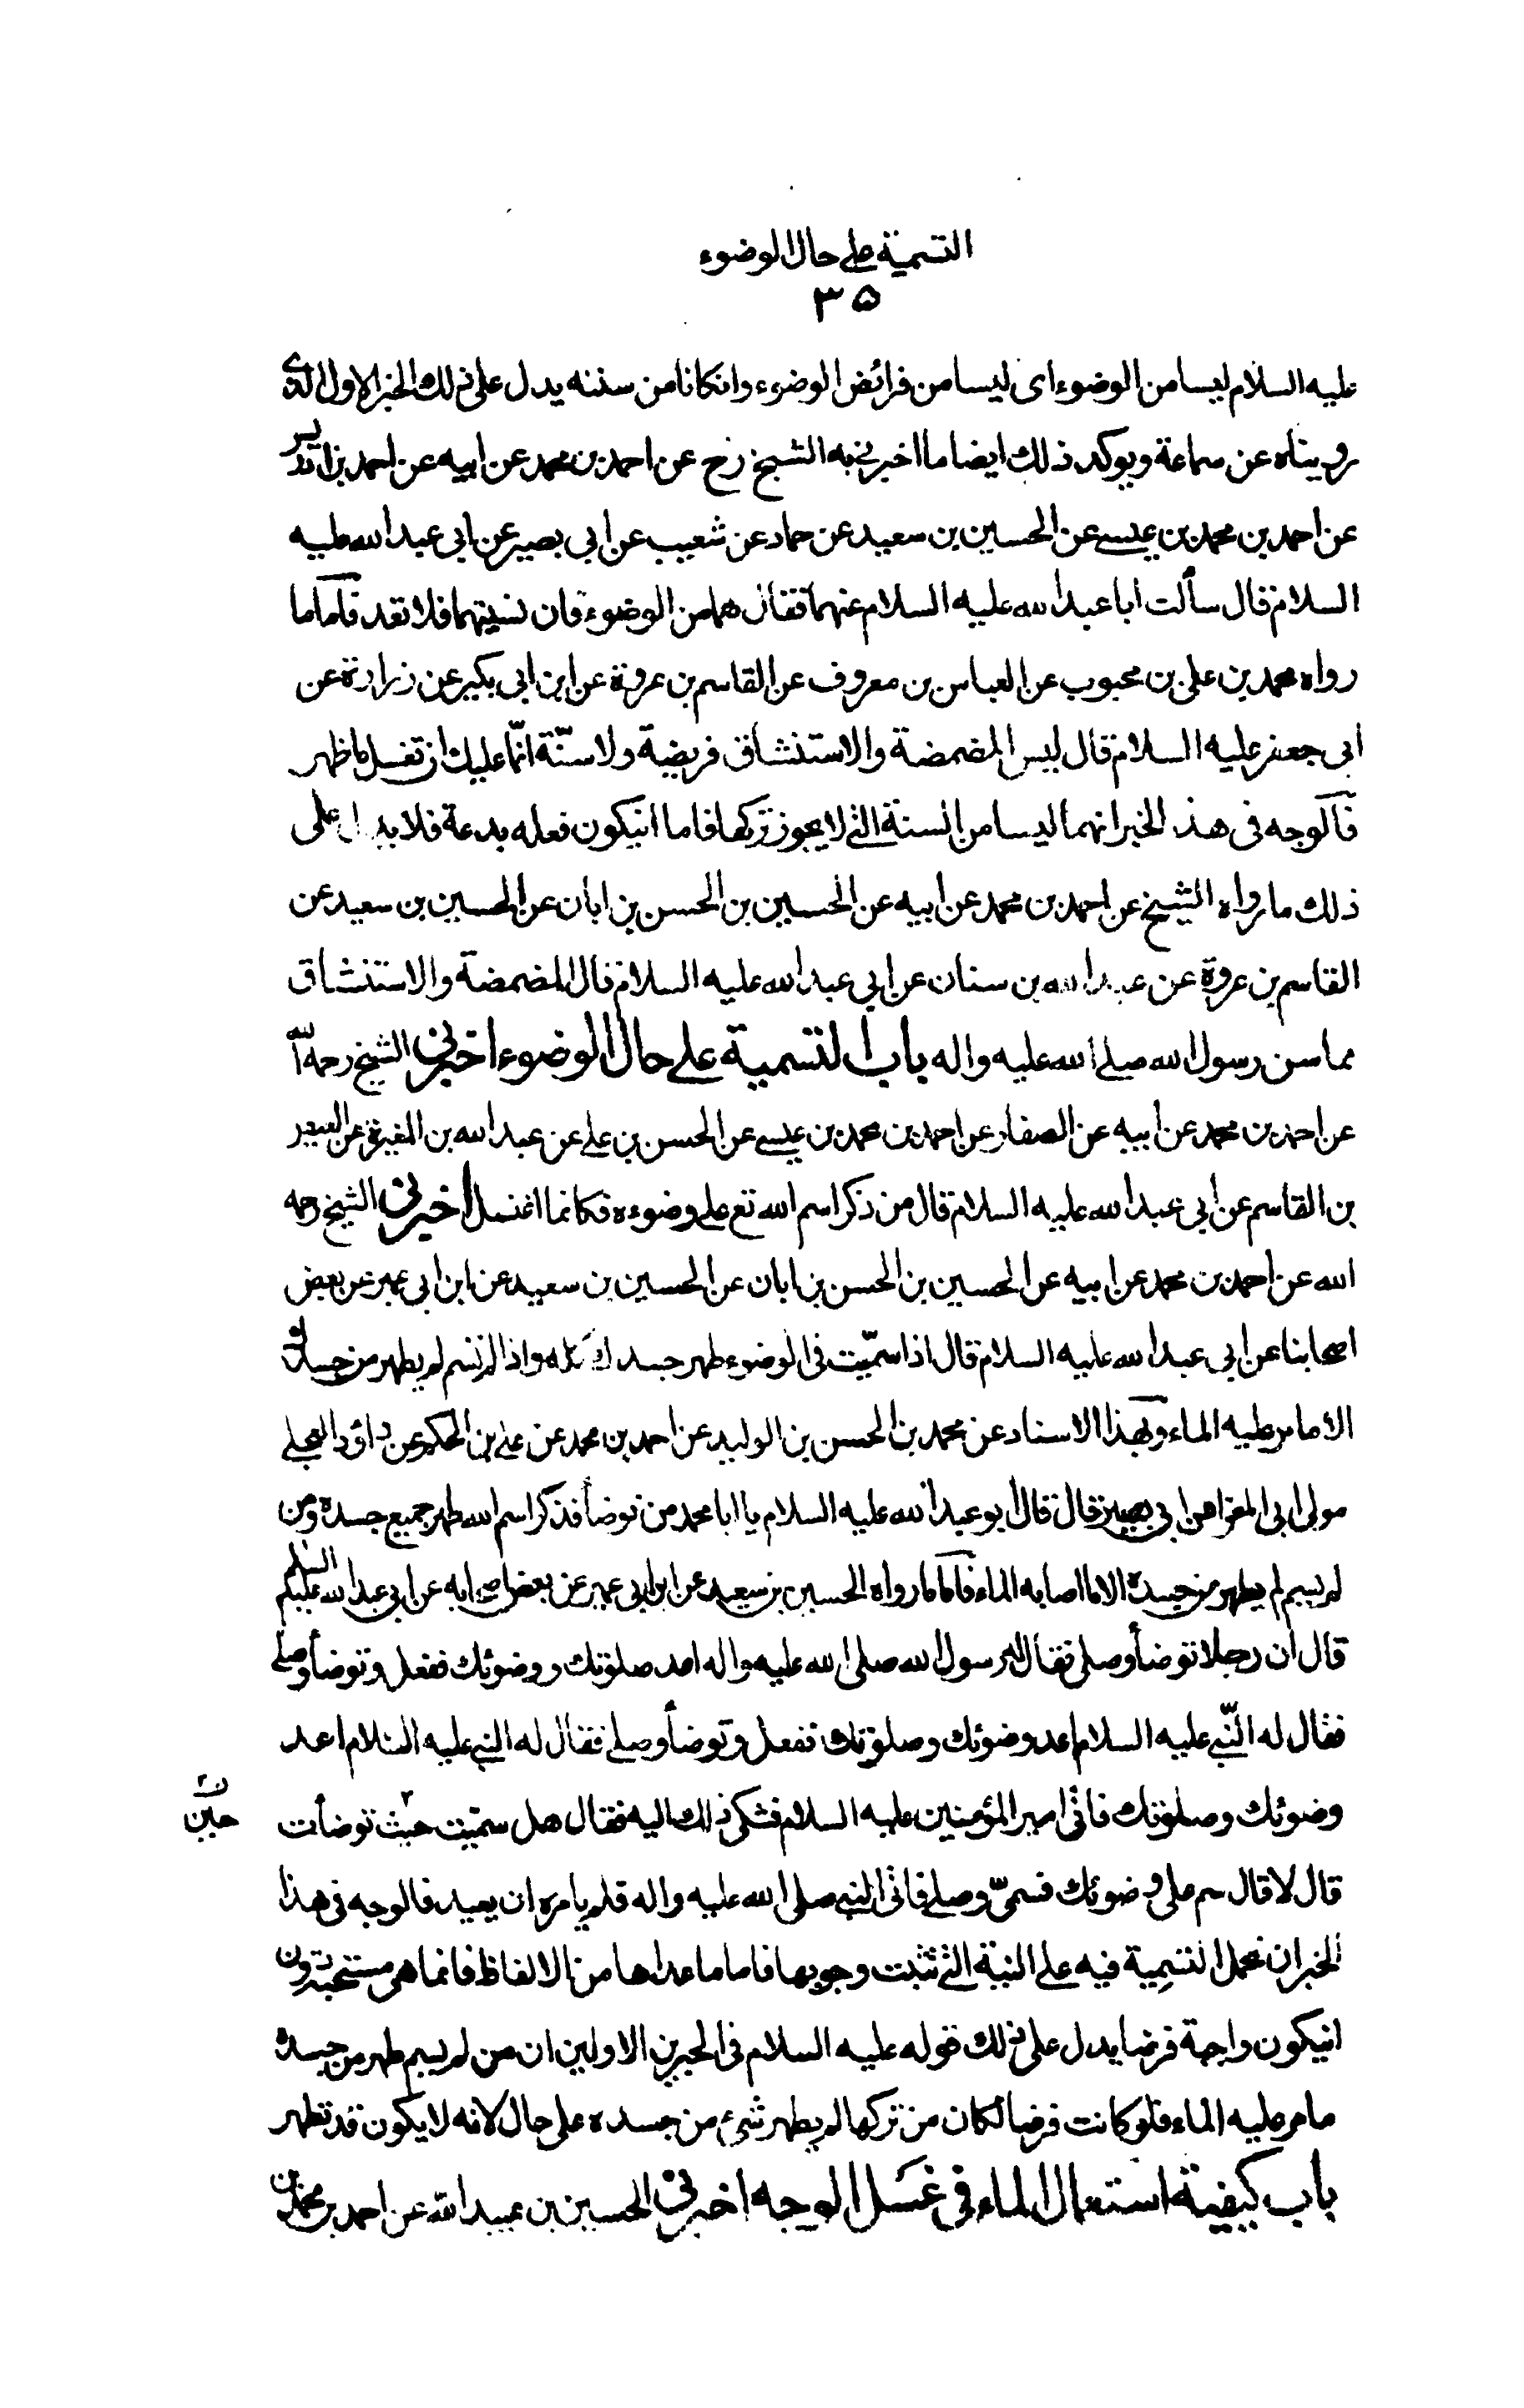 التسمية على حال الوضوء
٣٥
عليه السلام ليسا من الوضوء اى ليسا من فرائض الوضوء وانكانا من سننه يدل على ذلك الخبر الاول الذى
رويناه عن سماعة ويوكد ذلك ايضا ما اخبرنى به الشيخ رح عن احمد بن محمد عن ابيه عن احمد بن ادريس
عن احمد بن محمد بن عيسى عن الحسين بن سعيد عن حماد عن شعيب عن ابي بصير عن ابى عبد الله عليه
السلام قال سألت ابا عبد الله عليه السلام عنهما فقال هما من الوضوء فان نسيتهما فلا تعد فاما ما
رواه محمد بن على بن محبوب عن العباس بن معروف عن القاسم بن عروة عن ابن ابى بكير عن زرارة عن
ابى جعفر عليه السلام قال ليس المضمضة والاستنشاق فريضة ولا سنّة انّما عليك ان تغسل ما ظهر
فالوجه فى هذا الخبر انهما ليسا من السنة التى لا يجوز تركها فاما انيكون فعله بدعة فلا يدل على
ذلك ما رواه الشيخ عن احمد بن محمد عن ابيه عن الحسين بن الحسن بن ابان عن الحسين بن سعيد عن
القاسم بن عروة عن عبد الله بن سنان عن ابي عبد الله عليه السلام قال المضمضة والاستنشاق
مما سن رسول الله صلى الله عليه واله باب التسمية على حال الوضوء اخبرنى الشيخ رحمه الله
عن احمد بن محمد عن ابيه عن الصفار عن احمد بن محمد بن عيسى عن الحسن بن على عن عبد الله بن المغيرة عن العيص
بن القاسم عن ابى عبد الله عليه السلام قال من ذكر اسم الله تع على وضوءه فكانما اغتسل اخبرنى الشيخ رحمه
الله عن احمد بن محمد عن ابيه عن الحسين بن الحسن بن ابان عن الحسين بن سعيد عن ابن ابى عمير عن بعض
اصحابنا عن ابى عبد الله عليه السلام قال اذا سمّيت فى الوضوء طهر جسدك كله واذا لم تسم لم يطهر من جسدك
الا ما مر عليه الماء وبهذا الاسناد عن محمد بن الحسن بن الوليد عن احمد بن محمد عن على بن الحكم عن داؤد العجلى
مولى ابى المغرا عن ابى بصير قال قال ابو عبد الله عليه السلام يا ابا محمد من توضأ فذكر اسم الله طهر جميع جسده ومن
لم يسم لم يطهر من جسده الا ما اصابه الماء فاما ما رواه الحسين بن سعيد عن ابن ابى عمير عن بعض اصحابه عن ابى عبد الله عليه السلم
قال ان رجلا توضأ وصلى فقال له رسول الله صلى الله عليه واله اعد صلوتك ووضوئك ففعل وتوضأ وصلى
فقال له النّبى عليه السلام اعد وضوئك وصلوتك ففعل وتوضأ وصلى فقال له النبى عليه السلام اعد
وضوئك وصلوتك فاتى امير المؤمنين عليه السلام فشكى ذلك اليه فقال هل سميت حيث توضأت
حين
قال لا قال سم على وضوئك فسمىّ وصلى فاتى النبى صلى الله عليه واله فلم يامره ان يعيد فالوجه فى هذا
الخبر ان نحمل التسمية فيه على النية التى ثبت وجوبها فاما ما عداها من الالفاظ فانما هى مستحبة دون
انيكون واجبة فرضا يدل على ذلك قوله عليه السلام فى الخبرين الاولين ان من لم يسم طهر من جسده
ما مر عليه الماء فلو كانت فرضا لكان من تركها لم يطهر شئ من جسده على حال لانه لا يكون قد تطهر
باب كيفية استعمال الماء فى غسل الوجه اخبرنى الحسين بن عبيد الله عن احمد بن محمد بن